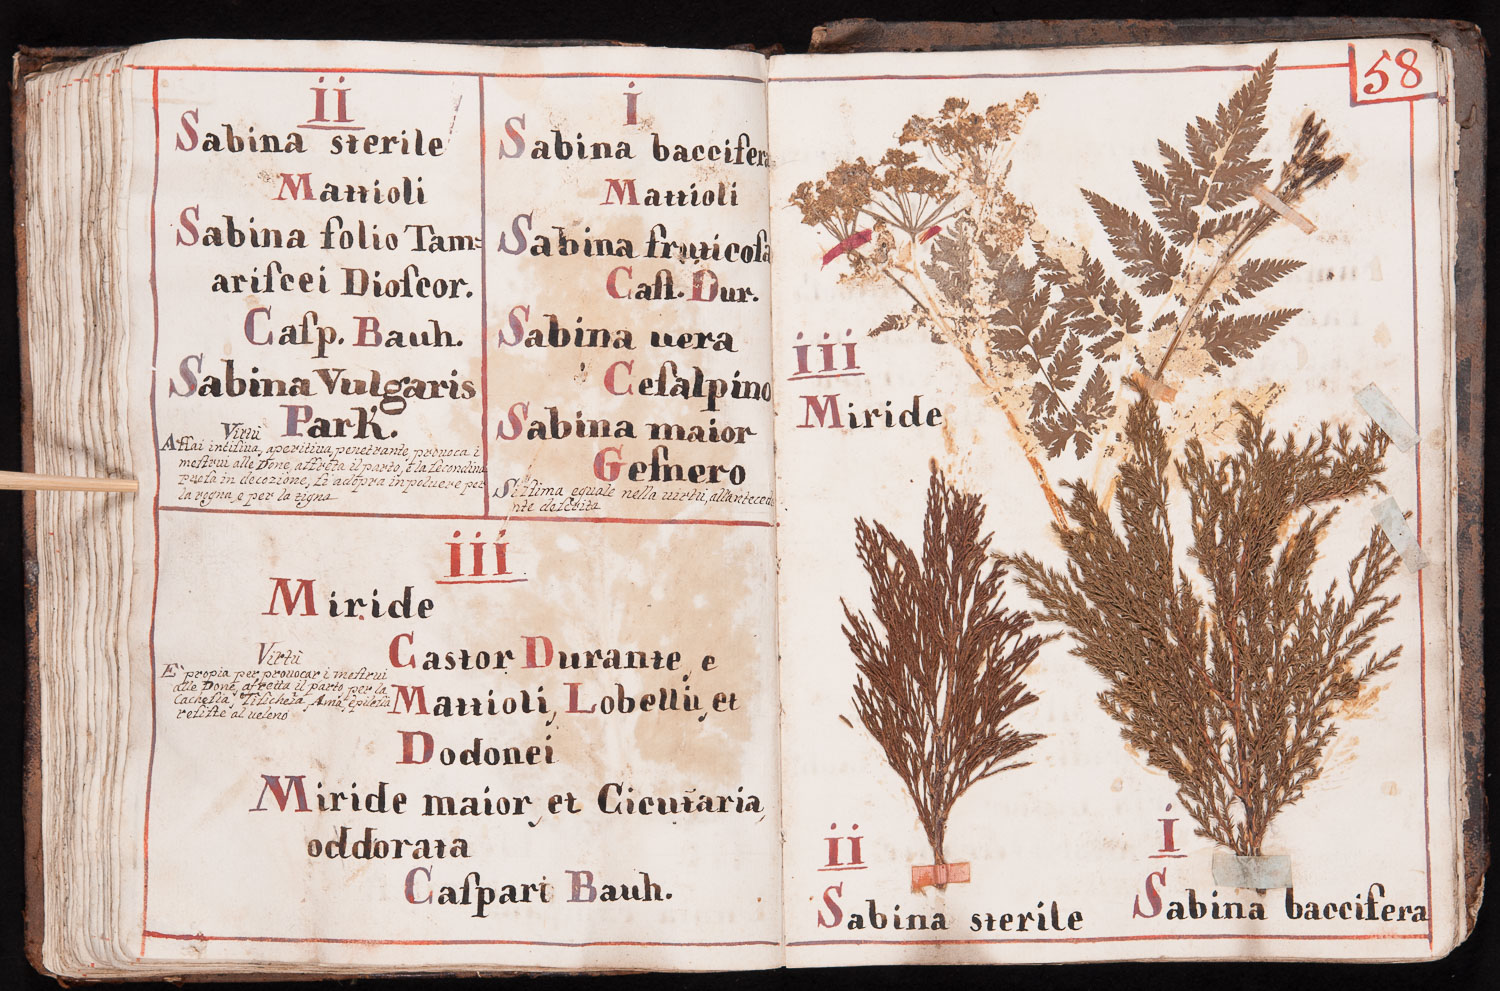 ii
Sabina sterile
Mattioli
Sabina folio Tam=
ariſcei Dioſcor.
Caſp. Bauh.
Sabina Vulgaris
Park.
Virtù
Aſſai inciſiua, aperitiua, penetrante, prouoca i
meſtrui alle Done, affreta il parto, e la ſecondina
preſa in decozione, ſi adopra in poluere per
la rogna, e per la tigna
i
Sabina baccifera
Mattioli
Sabina fruticoſa
Caſt. Dur.
Sabina uera
Ceſalpino
Sabina maior
Geſnero
Si ſtima eguale nella uirtù, all'antecede
nte deſcrita
iii
Miride
Castor Durante, e
Mattioli, Lobellii, et
Dodonei
Virtù
E' propia per prouocar i meſtrui
alle Done, afretta il parto, per la
Cacheſia, Tiſichezza, Aſma, epileſia
reſiſte al ueleno
Miride maior, et Cicutaria,
oddorata
Caſpari Bauh.
58
iii
Miride
ii
Sabina sterile
i
Sabina baccifera